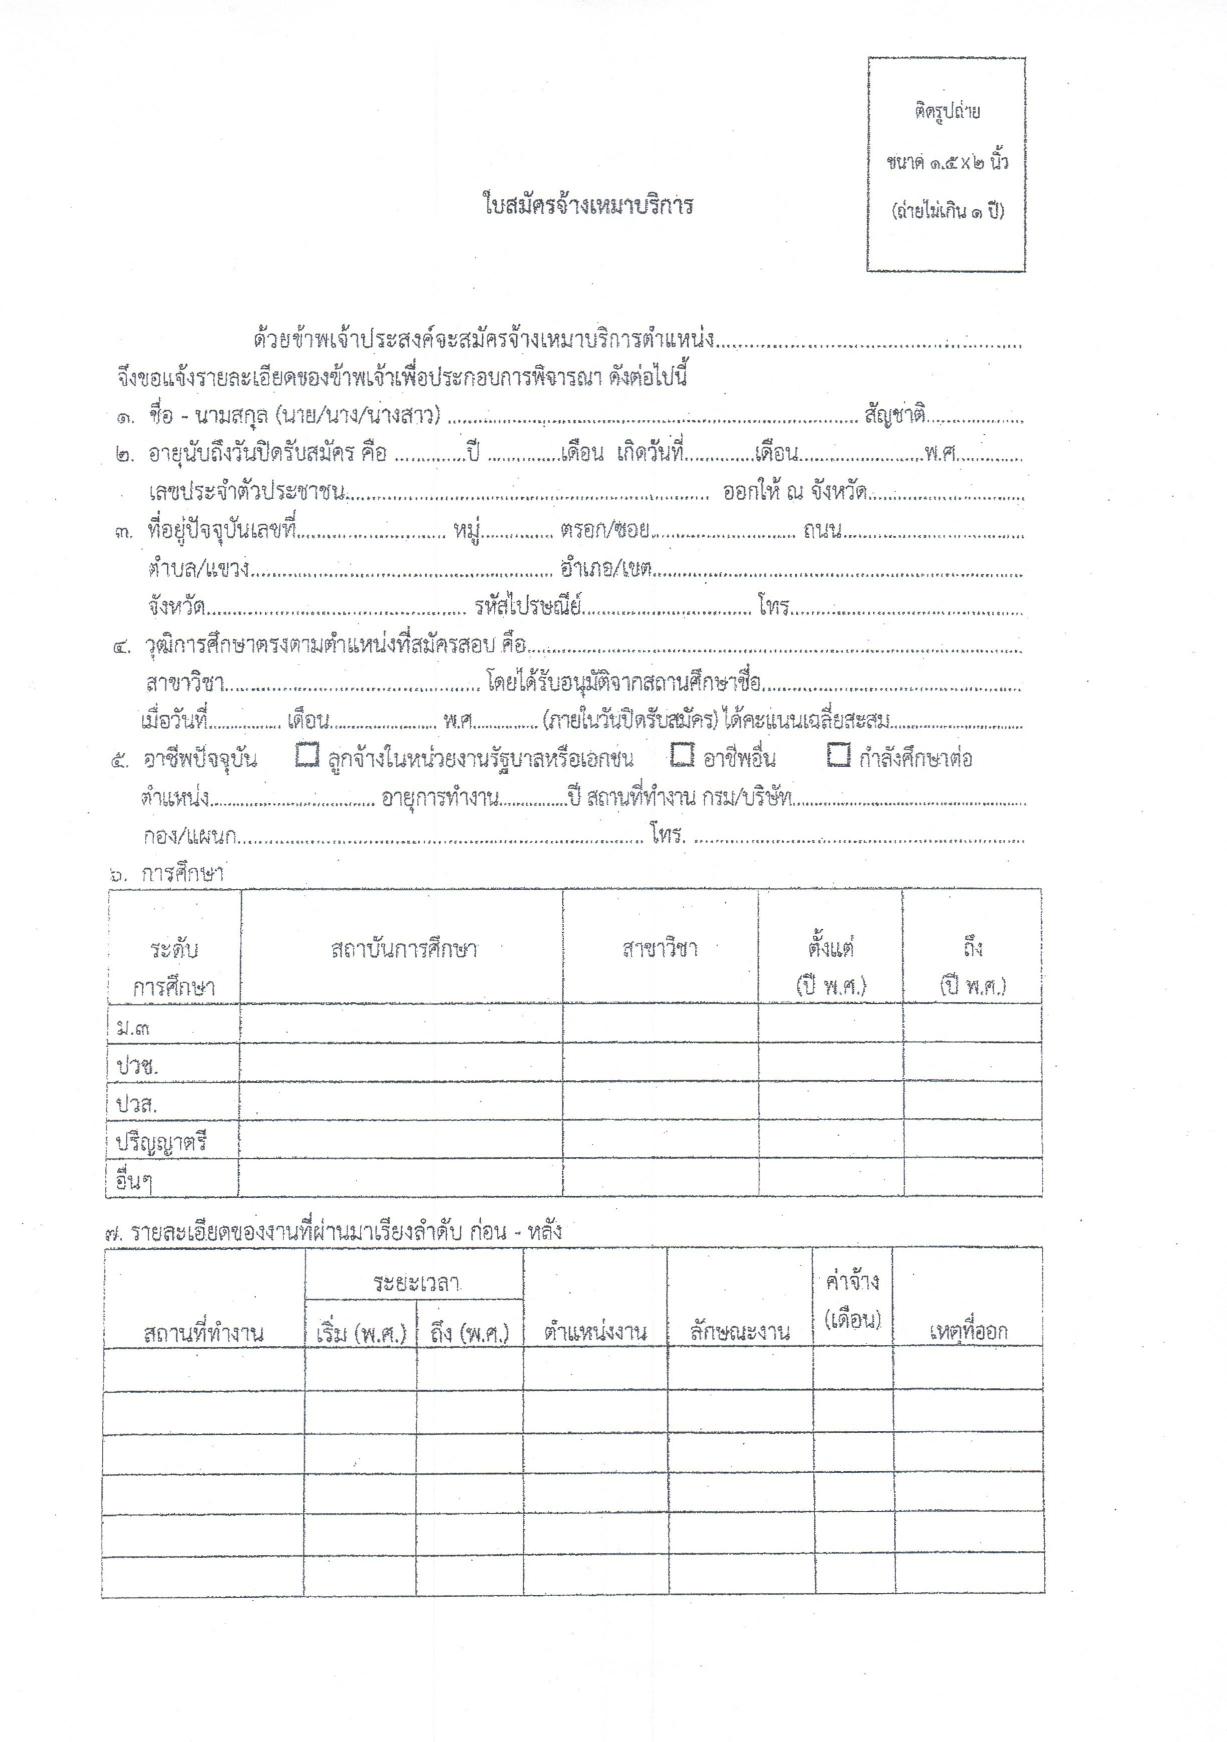 ติดรูปถ่าย
ขนาด ๑.๕ x ๒ นิ้ว
(ถ่ายไม่เกิน ๑ ปี)
ใบสมัครจ้างเหมาบริการ
ด้วยข้าพเจ้าประสงค์จะสมัครจ้างเหมาบริการตำแหน่ง..........................................
จึงขอแจ้งรายละเอียดของข้าพเจ้าเพื่อประกอบการพิจารณา ดังต่อไปนี้
๑. ชื่อ - นามสกุล (นาย/นาง/นางสาว) .......................................................... สัญชาติ..............
๒. อายุนับถึงวันปิดรับสมัคร คือ ..........ปี ..........เดือน เกิดวันที่..........เดือน..................พ.ศ..........
เลขประจำตัวประชาชน.................................................... ออกให้ ณ จังหวัด......................
๓. ที่อยู่ปัจจุบันเลขที่...................... หมู่.......... ตรอก/ซอย..................... ถนน..........................
ตำบล/แขวง........................................... อำเภอ/เขต.....................................................
จังหวัด..................................... รหัสไปรษณีย์........................ โทร.................................
๔. วุฒิการศึกษาตรงตามตำแหน่งที่สมัครสอบ คือ......................................................................
สาขาวิชา..................................... โดยได้รับอนุมัติจากสถานศึกษาชื่อ.....................................
เมื่อวันที่.......... เดือน............... พ.ศ.......... (ภายในวันปิดรับสมัคร) ได้คะแนนเฉลี่ยสะสม...................
๕. อาชีพปัจจุบัน ☐ ลูกจ้างในหน่วยงานรัฐบาลหรือเอกชน ☐ อาชีพอื่น ☐ กำลังศึกษาต่อ
ตำแหน่ง........................ อายุการทำงาน..........ปี สถานที่ทำงาน กรม/บริษัท..................................
กอง/แผนก.......................................................... โทร. ...............................................
๖. การศึกษา
ระดับการศึกษา สถาบันการศึกษา สาขาวิชา ตั้งแต่ (ปี พ.ศ.) ถึง (ปี พ.ศ.)
ม.๓
ปวช.
ปวส.
ปริญญาตรี
อื่นๆ
๗. รายละเอียดของงานที่ผ่านมาเรียงลำดับ ก่อน - หลัง
สถานที่ทำงาน ระยะเวลา เริ่ม (พ.ศ.) ถึง (พ.ศ.) ตำแหน่งงาน ลักษณะงาน ค่าจ้าง (เดือน) เหตุที่ออก